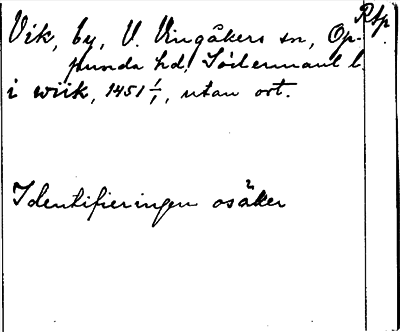 Rtp.
Vik, by, V. Vingåkers sn, Op-
punda hd, Södermanl. l.
i wiik, 1451 1/1, utan ort.
Identifieringen osäker